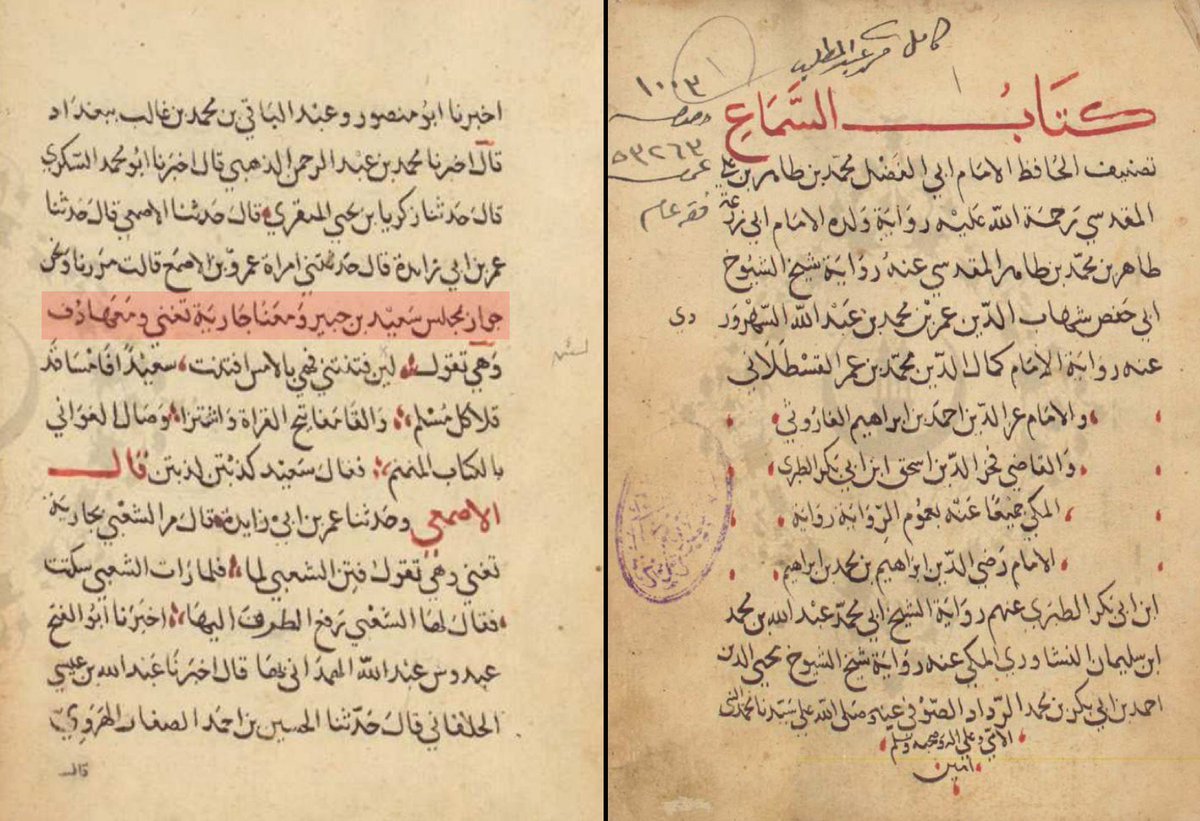 كامل عبد المطلب
١
١٠٠٣
كتاب السَّمَاعِ
٥٣٢٦٣
تصنيف الحافظ الامام ابي الفضل محمد بن طاهر بن علي
المقدسي رحمة الله عليه رواية ولده الامام ابي زرعة
فقه عام
طاهر بن محمد بن طاهر المقدسي عنه رواية شيخ الشيوخ
ابي حفص شهاب الدين عمر بن محمد بن عبد الله السهرور دي
عنه رواية الامام كمال الدين محمد بن عمر القسطلاني
والامام عز الدين احمد بن ابراهيم الفاروثي
والقاضي فخر الدين اسحق ابن ابي بكر الطبري
المكي جميعا عنه بعموم الرواية رواية
الامام رضي الدين ابراهيم بن محمد بن ابراهيم
ابن ابي بكر الطبري عنهم رواية الشيخ ابي محمد عبد الله بن محمد
ابن سليمان النشاوري المكي عنه رواية شيخ الشيوخ محيي الدين
احمد بن ابي بكر بن محمد الرداد الصوفي عنه صلى الله على سيدنا محمد النبي
الامي وعلى اله وصحبه وسلم
امين
اخبرنا ابو منصور وعبد الباقي بن محمد بن غالب ببغداد
قال اخبرنا محمد بن عبد الرحمن الذهبي قال اخبرنا ابو محمد السكري
قال حدثنا زكريا بن يحيى المنقري قال حدثنا الاصمعي قال حدثنا
عمر بن ابي زايدة قال حدثتني امراة عمرو بن الاصمع قالت مررنا ونحن
جوار بمجلس سعيد بن جبير ومعنا جارية تغني ومعها دف
وهي تقول لين فتنتني فهي بالامس افتنت سعيدا فامسا قد
قلا كل مسلم والقا مفاتيح القراة واشترا وصال الغواني
بالكتاب المنمنم فقال سعيد كذبتن كذبتن قال
الاصمعي وحدثنا عمر بن ابي زايدة قال مر الشعبي بجارية
تغني وهي تقول فتن الشعبي لما فلما رات الشعبي سكتت
فقال لها الشعبي رفع الطرف اليها اخبرنا ابو الفتح
عبدوس عبد الله الهمداني بها قال اخبرنا عبد الله بن عيسي
الحلفاني قال حدثنا الحسين بن احمد الصفار الهروي
قال